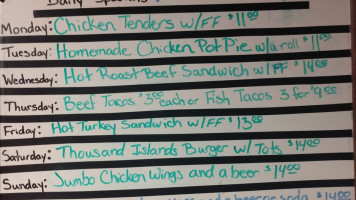 Daily Specials
Monday: Chicken Tenders w/FF $11.00
Tuesday: Homemade Chicken Pot Pie w/a roll $11.00
Wednesday: Hot Roast Beef Sandwich w/FF $14.00
Thursday: Beef Tacos $3.00 each or Fish Tacos 3 for $9.00
Friday: Hot Turkey Sandwich w/FF $13.00
Saturday: Thousand Islands Burger w/ Tots $14.00
Sunday: Jumbo Chicken Wings and a beer $14.00
$14.00